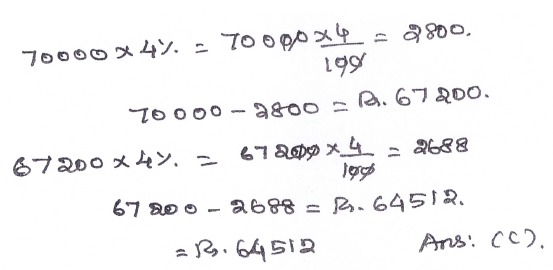 70000 × 4%. = 70000 × 4/100 = 2800.
70000 - 2800 = Rs. 67200.
67200 × 4%. = 67200 × 4/100 = 2688
67200 - 2688 = Rs. 64512.
= Rs. 64512 Ans: (C).